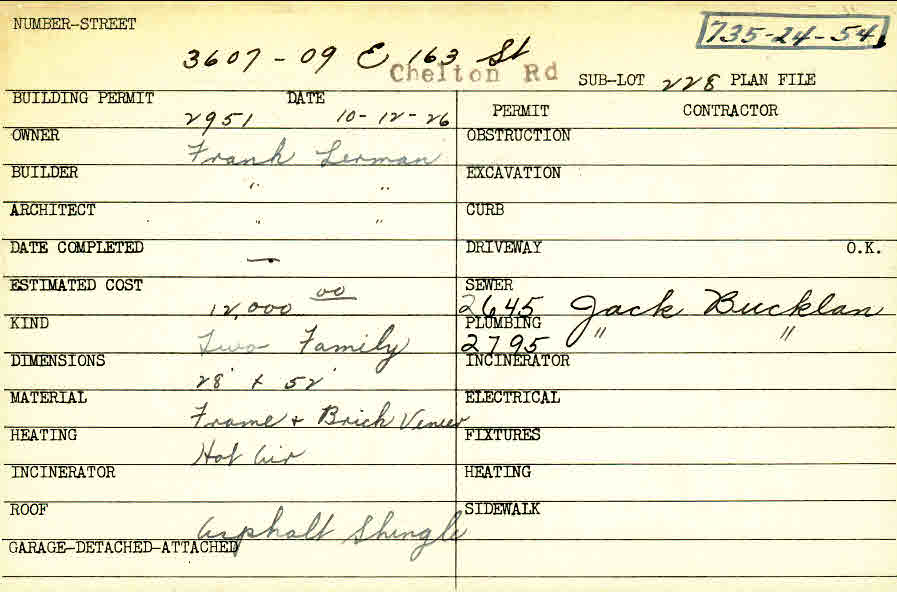 NUMBER-STREET
735-24-54
3607-09 E 163 St
Chelton Rd
SUB-LOT 228 PLAN FILE
BUILDING PERMIT DATE
2951 10-12-26
PERMIT CONTRACTOR
OWNER
Frank Lerman
OBSTRUCTION
BUILDER
" "
EXCAVATION
ARCHITECT
" "
CURB
DATE COMPLETED
—
DRIVEWAY O.K.
ESTIMATED COST
12,000 00
SEWER
2645 Jack Bucklan
KIND
Two Family
PLUMBING
2795 " "
DIMENSIONS
28' x 52'
INCINERATOR
MATERIAL
Frame + Brick Veneer
ELECTRICAL
HEATING
Hot Air
FIXTURES
INCINERATOR
HEATING
ROOF
Asphalt Shingle
SIDEWALK
GARAGE-DETACHED-ATTACHED